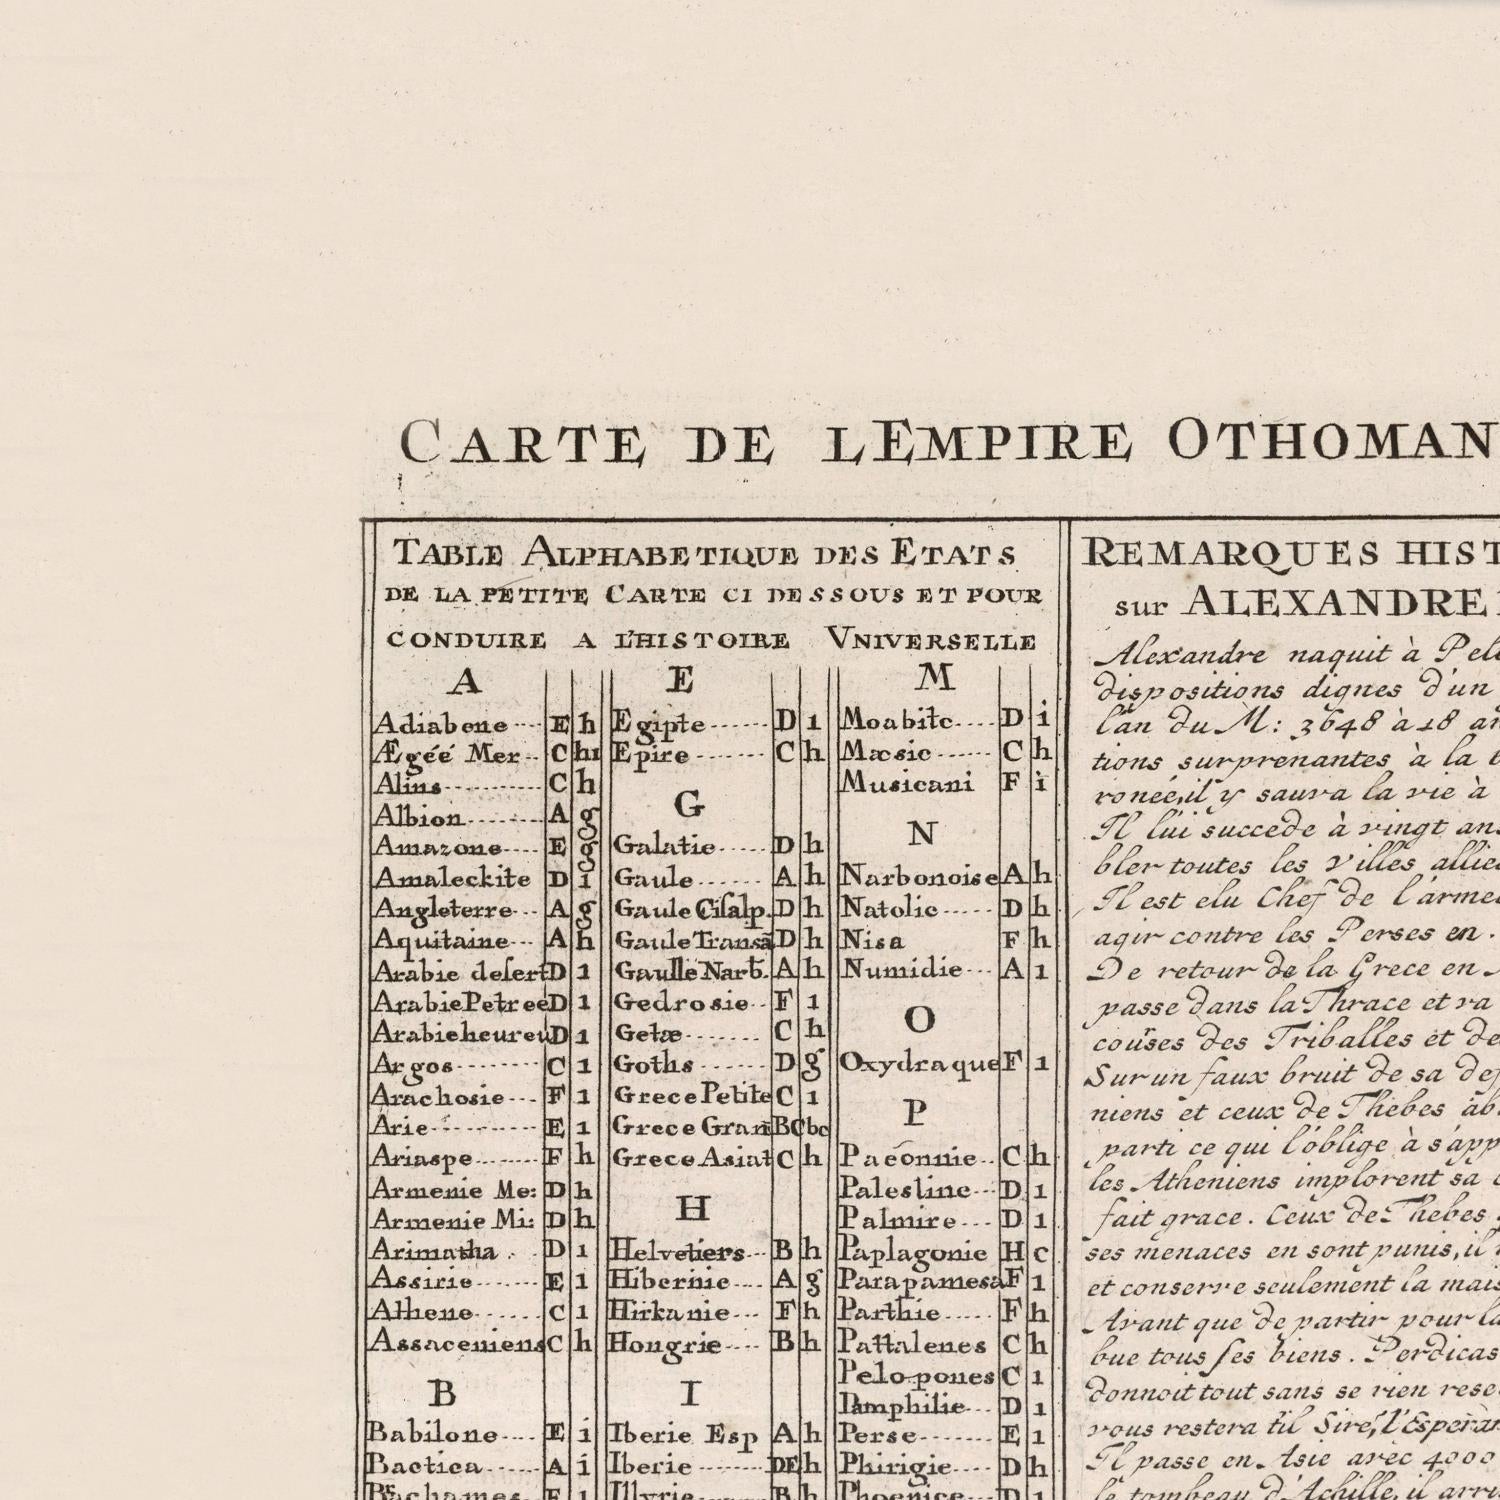 CARTE DE LEMPIRE OTHOMAN
TABLE ALPHABETIQUE DES ETATS
DE LA PETITE CARTE CI DESSOUS ET POUR
CONDUIRE A L'HISTOIRE VNIVERSELLE
A
Adiabene E h
Ægéé Mer C hi
Alins C h
Albion A g
Amazone E g
Amaleckite D i
Angleterre A g
Aquitaine A h
Arabie desert D 1
Arabie Petreé D 1
Arabie heureu D 1
Argos C 1
Arachosie F 1
Arie E 1
Ariaspe F h
Armenie Me: D h
Armenie Mi: D h
Arimatha D 1
Assirie E 1
Athene C 1
Assaceniens C h
B
Babilone E i
Baetica A i
E
Egipte D 1
Epire C h
G
Galatie D h
Gaule A h
Gaule Cisalp. D h
Gaule Transa D h
Gaulle Narb. A h
Gedrosie F 1
Getæ C h
Goths D g
Grece Petite C 1
Grece Gran BC bc
Grece Asiat C h
H
Helvetiers B h
Hibernie A g
Hirkanie F h
Hongrie B h
I
Iberie Esp A h
Iberie DE h
Illyrie B h
M
Moabite D i
Mæsie C h
Musicani F i
N
Narbonoise A h
Natolie D h
Nisa F h
Numidie A 1
O
Oxydraque F 1
P
Paeonnie C h
Palestine D 1
Palmire D 1
Paplagonie H c
Parapamesa F 1
Parthie F h
Pattalenes C h
Pelopones C 1
Pamphilie D 1
Perse E 1
Phirigie D h
Phoenice D 1
REMARQUES HIST
sur ALEXANDRE
Alexandre naquit à Pel
dispositions dignes d'un
l'an du M: 3648 à 18 an
tions surprenantes à la
roneé, il y sauva la vie à
Il lui succede à vingt ans
bler toutes les villes allie
Il est elu Chef de l'armeé
agir contre les Perses en
De retour de la Grece en
passe dans la Thrace et va
couses des Triballes et de
Sur un faux bruit de sa
niens et ceux de Thebes
parti ce qui l'oblige à s'app
les Atheniens implorent sa
fait grace. Ceux de Thebes
ses menaces en sont punis, il
et conserve seulement la mais
Avant que de partir pour la
bue tous ses biens. Perdicas
donnoit tout sans se rien rese
vous restera til Sire, l'Esperan
Il passe en Asie avec 4000
le tombeau d'Achille, il arri